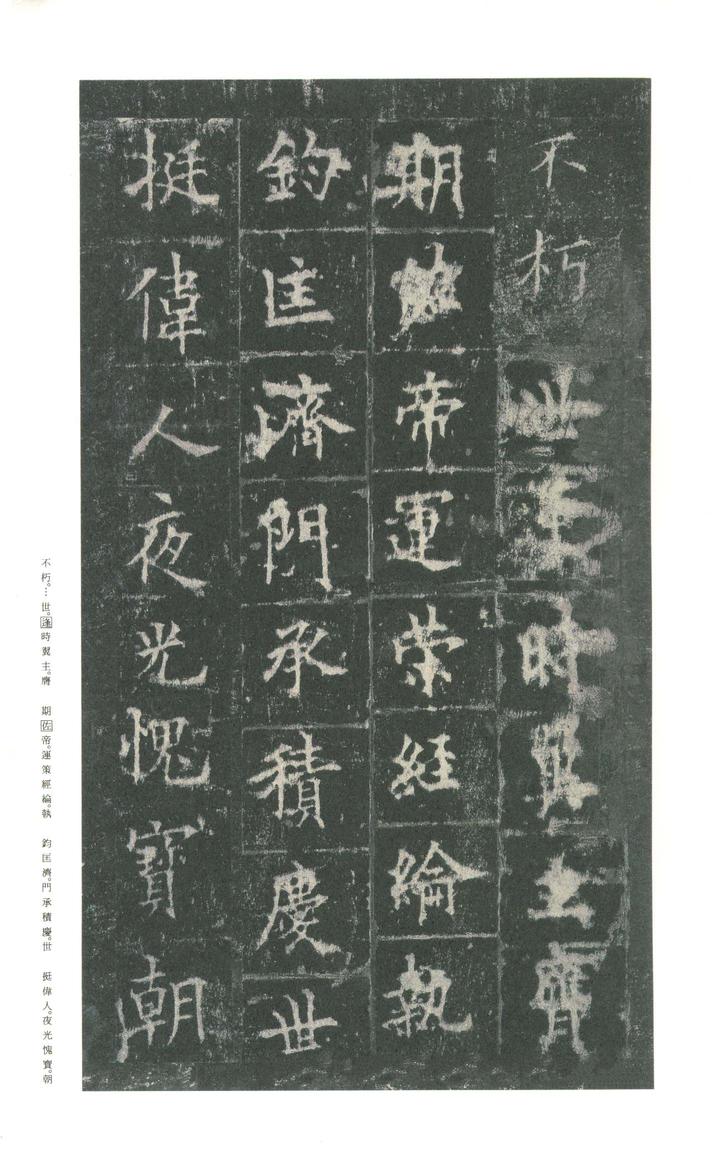 不朽世時翼主膺
期佐帝運策經綸執
鈞匡濟門承積慶世
挺偉人夜光愧寶朝
不朽。…世。逢時翼主。膺　期佐帝。運策經綸。執　鈞匡濟。門承積慶。世　挺偉人。夜光愧寶。朝